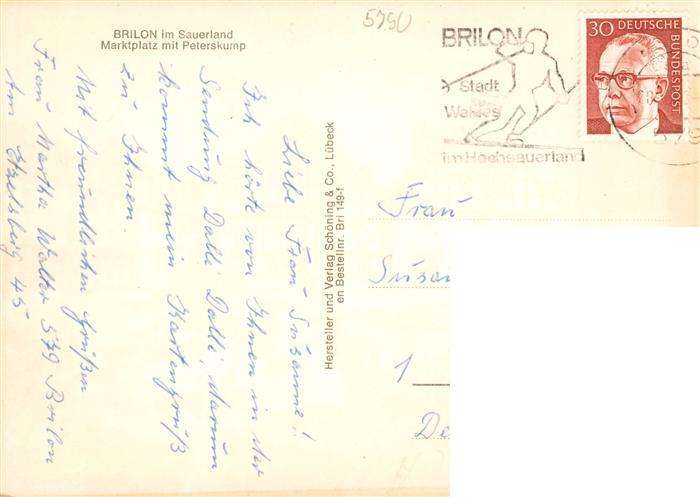 BRILON im Sauerland
Marktplatz mit Peterskump
5750
BRILON
Stadt
im Hochsauerland
30 DEUTSCHE
BUNDESPOST
Liebe Frau Susanne!
Ich hörte von Ihnen in der
Sendung Dalli Dalli, darum
kommt mein Kartengruß
zu Ihnen.
Mit freundlichen Grüßen
Frau Martha Walter 579 Brilon
Am 45
Hersteller und Verlag Schöning & Co., Lübeck
en Bestellnr. Bri 149-f
Frau
Susan
1
De